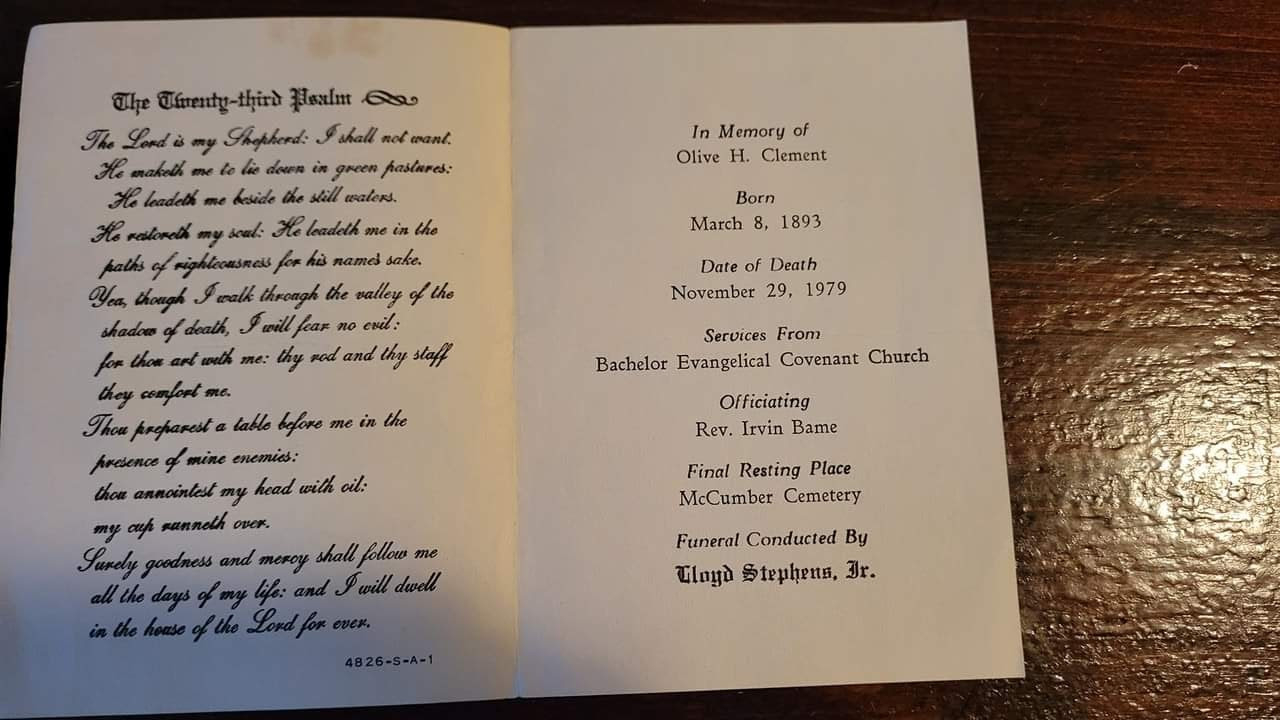 The Twenty-third Psalm
The Lord is my Shepherd: I shall not want.
He maketh me to lie down in green pastures:
He leadeth me beside the still waters.
He restoreth my soul: He leadeth me in the
paths of righteousness for his name's sake.
Yea, though I walk through the valley of the
shadow of death, I will fear no evil:
for thou art with me: thy rod and thy staff
they comfort me.
Thou preparest a table before me in the
presence of mine enemies:
thou annointest my head with oil:
my cup runneth over.
Surely goodness and mercy shall follow me
all the days of my life: and I will dwell
in the house of the Lord for ever.
4826-S-A-1
In Memory of
Olive H. Clement
Born
March 8, 1893
Date of Death
November 29, 1979
Services From
Bachelor Evangelical Covenant Church
Officiating
Rev. Irvin Bame
Final Resting Place
McCumber Cemetery
Funeral Conducted By
Lloyd Stephens, Jr.